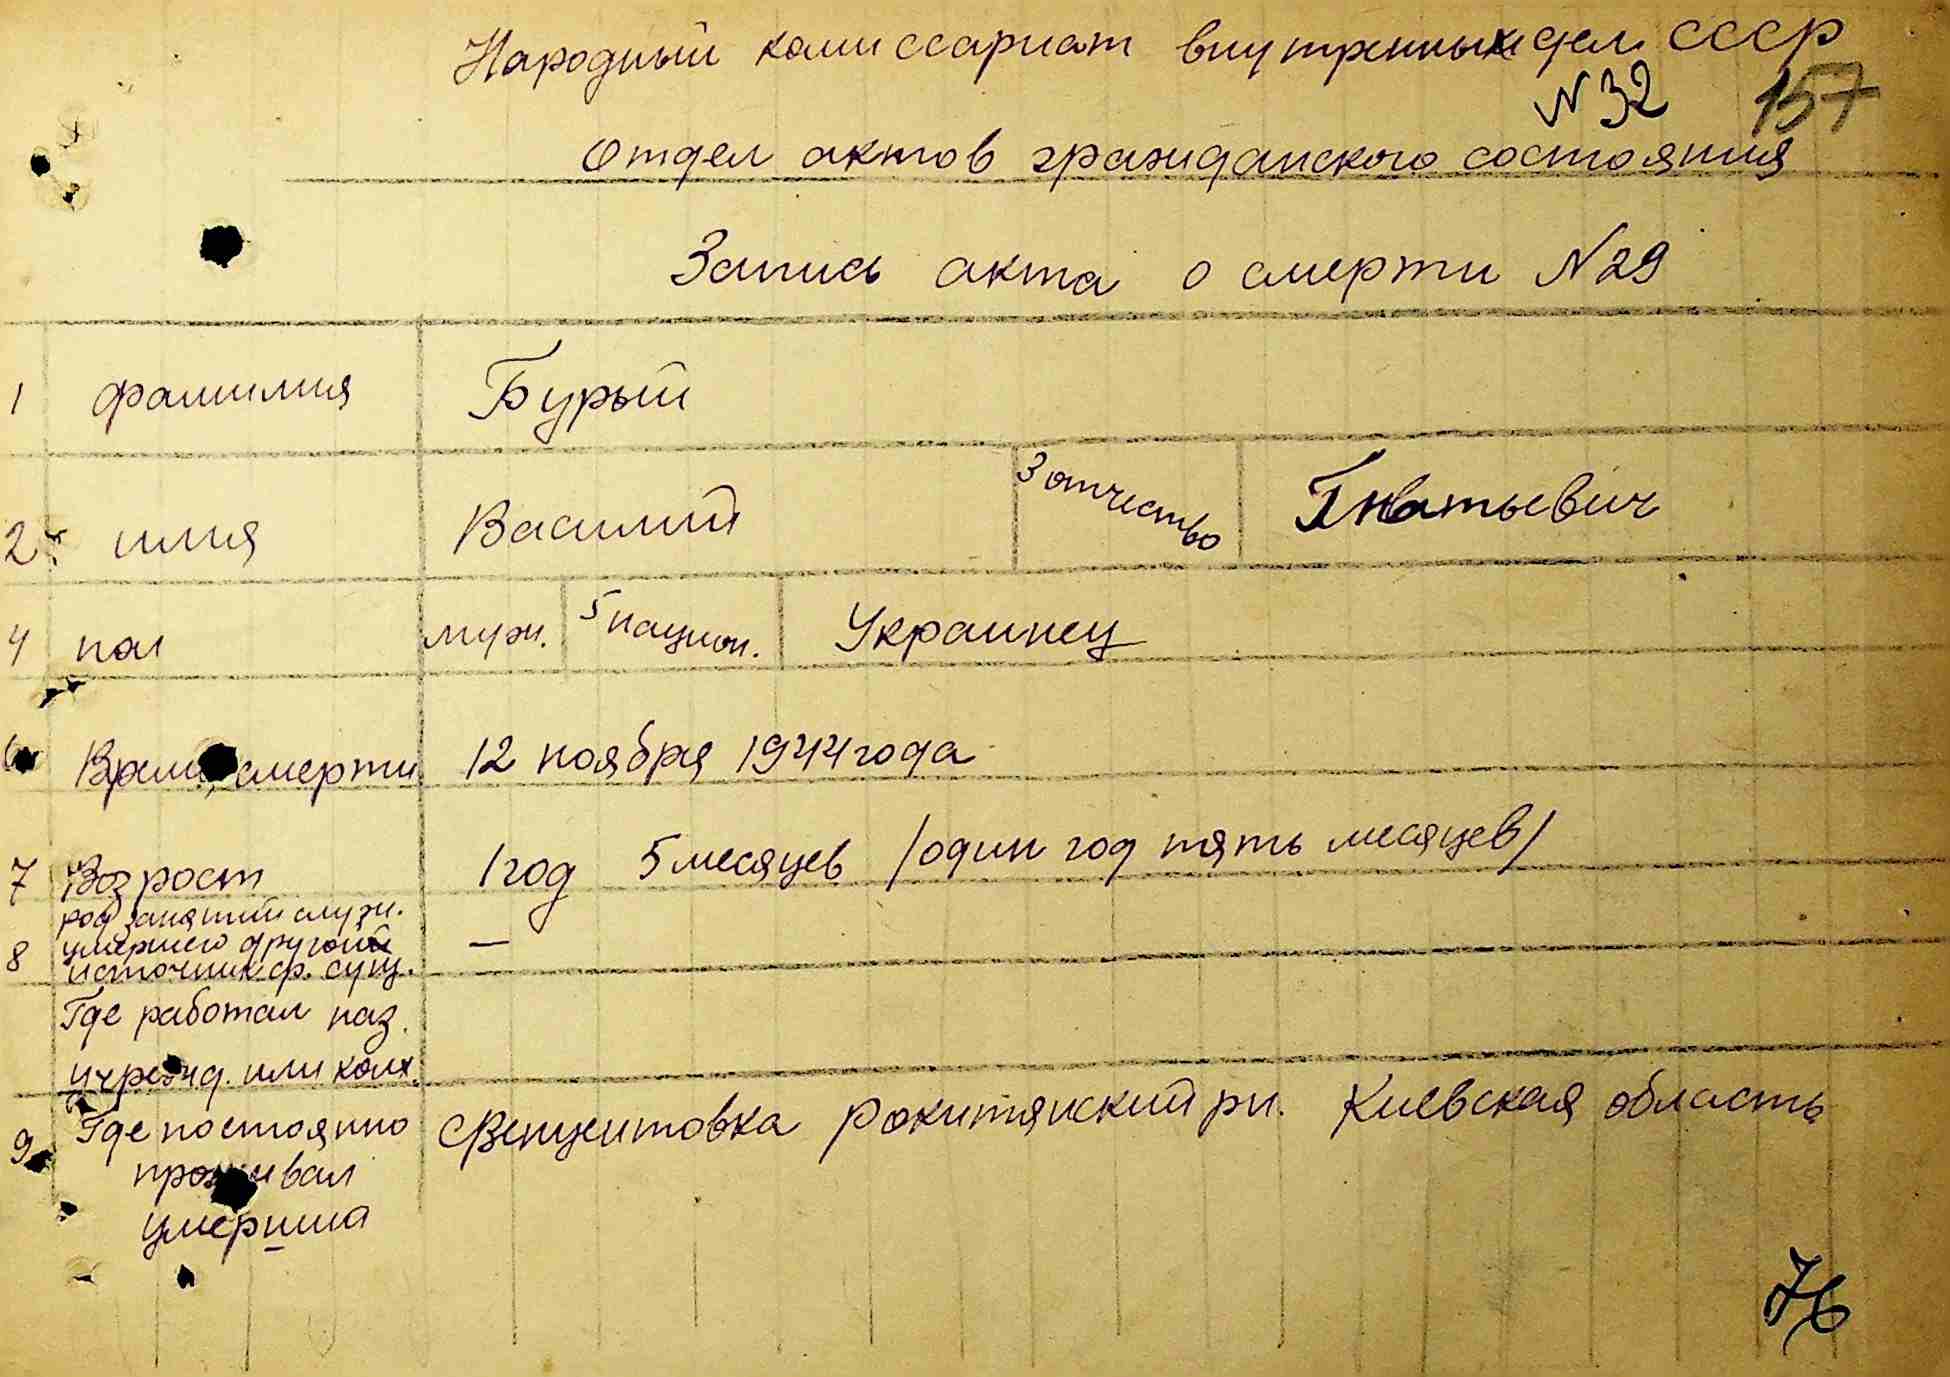 Народный комиссариат внутренных дел СССР
N 32 157
Отдел актов гражданского состояния
Запись акта о смерти N 29
1 фамилия Бурый
2 имя Василий 3 отчество Гнатьевич
4 пол муж. 5 национ. Украинец
6 Время смерти 12 ноября 1944 года
7 Возрост 1 год 5 месяцев /один год пять месяцев/
род занятий служ.
8 умершего другой —
источник ср. сущ. —
Где работал наз.
учрежд. или колх.
9 Где постоянно Рокитянский рн. Киевская область
проживал
умерша